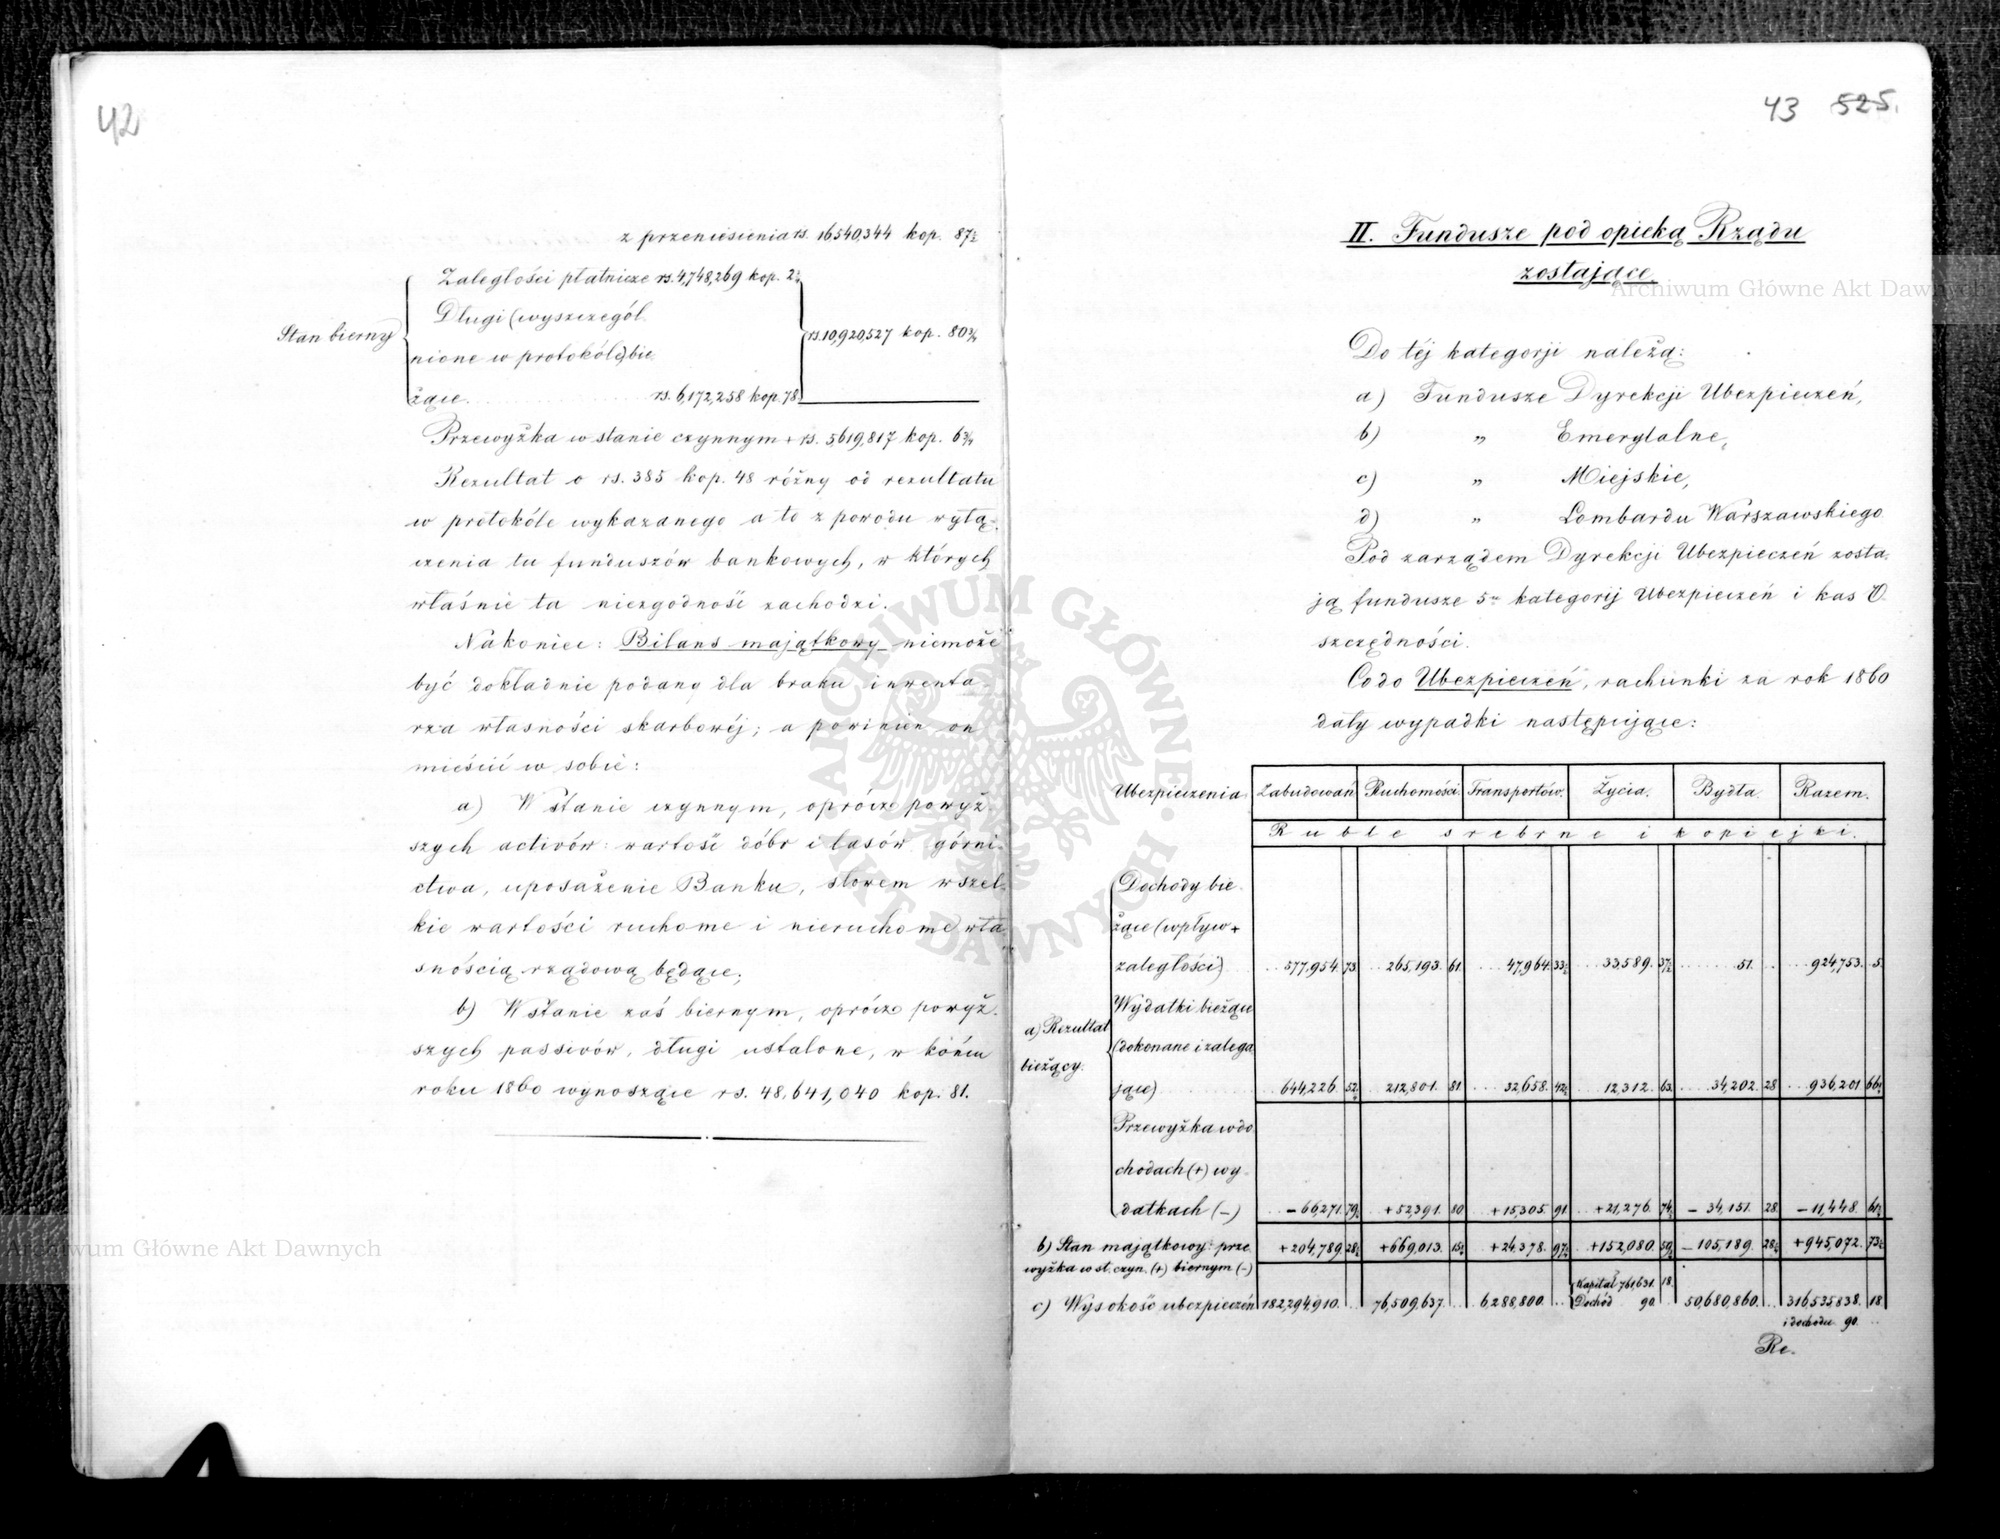 42
z przeniesienia rs. 16540,344 kop. 87½
Zaległości płatnicze rs. 4,748,269 kop. 2¾
Długi (wyszczegól
Stan bierny
rs. 10,920,527 kop. 80¾
nione w protokóle) bie
żące rs. 6,172,258 kop. 78
Przewyżka w stanie czynnym + rs. 5,619,817 kop. 6¾
Rezultat o rs. 385 kop. 48 różny od rezultatu
w protokóle wykazanego a to z powodu wyłą-
czenia tu funduszów bankowych, w których
właśnie ta niezgodność zachodzi.
Nakoniec: Bilans majątkowy niemoże
być dokładnie podany dla braku inwenta-
rza własności skarbowéj; a powinien on
mieścić w sobie:
a) W stanie czynnym, oprócz powyż-
szych activów: wartość dóbr i lasów górni-
ctwa, uposażenie Banku, słowem wszel-
kie wartości ruchome i nieruchome wła-
snością rządową będące;
b) W stanie zaś biernym, oprócz powyż-
szych passivów, długi ustalone, w końcu
roku 1860 wynoszące rs. 48,641,040 kop. 81.
43 525.
II. Fundusze pod opieką Rządu
zostające
Do téj kategorji należą:
a) Fundusze Dyrekcji Ubezpieczeń,
b) „ Emerytalne,
c) „ Miejskie,
d) „ Lombardu Warszawskiego
Pod zarządem Dyrekcji Ubezpieczeń zosta-
ją fundusze 5ciu kategorij Ubezpieczeń i kas O-
szczędności.
Co do Ubezpieczeń, rachunki za rok 1860
dały wypadki następujące:
Ubezpieczenia Zabudowań Ruchomości. Transportów. Życia. Bydła. Razem.
Ruble srebrne i kopiejki.
Dochody bie-
żące (wpływ +
zaległości) 577,954. 73. 265,193. 61. 47,964. 33½ 33,589. 37½ 51. 924,753. 5.
Wydatki bieżące
a) Rezultat
(dokonane i zalega
bieżący.
jące) 644,226. 52. 212,801. 81 32,658. 42½ 12,312. 63. 34,202. 28 936,201. 66½
Przewyżka w do
chodach (+) wy-
datkach (-) - 66,271. 79. + 52,391. 80 + 15,305. 91. + 21,276. 74½ - 34,151. 28 - 11,448. 61½
b) Stan majątkowy: prze + 204,789. 28½ + 669,013. 15½ + 24,378. 97½ + 152,080. 50½ - 105,189. 28½ + 945,072. 73½
wyżka w st. czyn. (+) biernym (-)
Kapitał 761,631. 18.
c) Wysokość ubezpieczeń 182,294,910. 76,509,637. 6,288,800. Dochód 90. 50,680,860. 316,535,838. 18
i dochodu 90.
Re-
Archiwum Główne Akt Dawnych
Archiwum Główne Akt Dawnych
ARCHIWUM GŁÓWNE AKT DAWNYCH